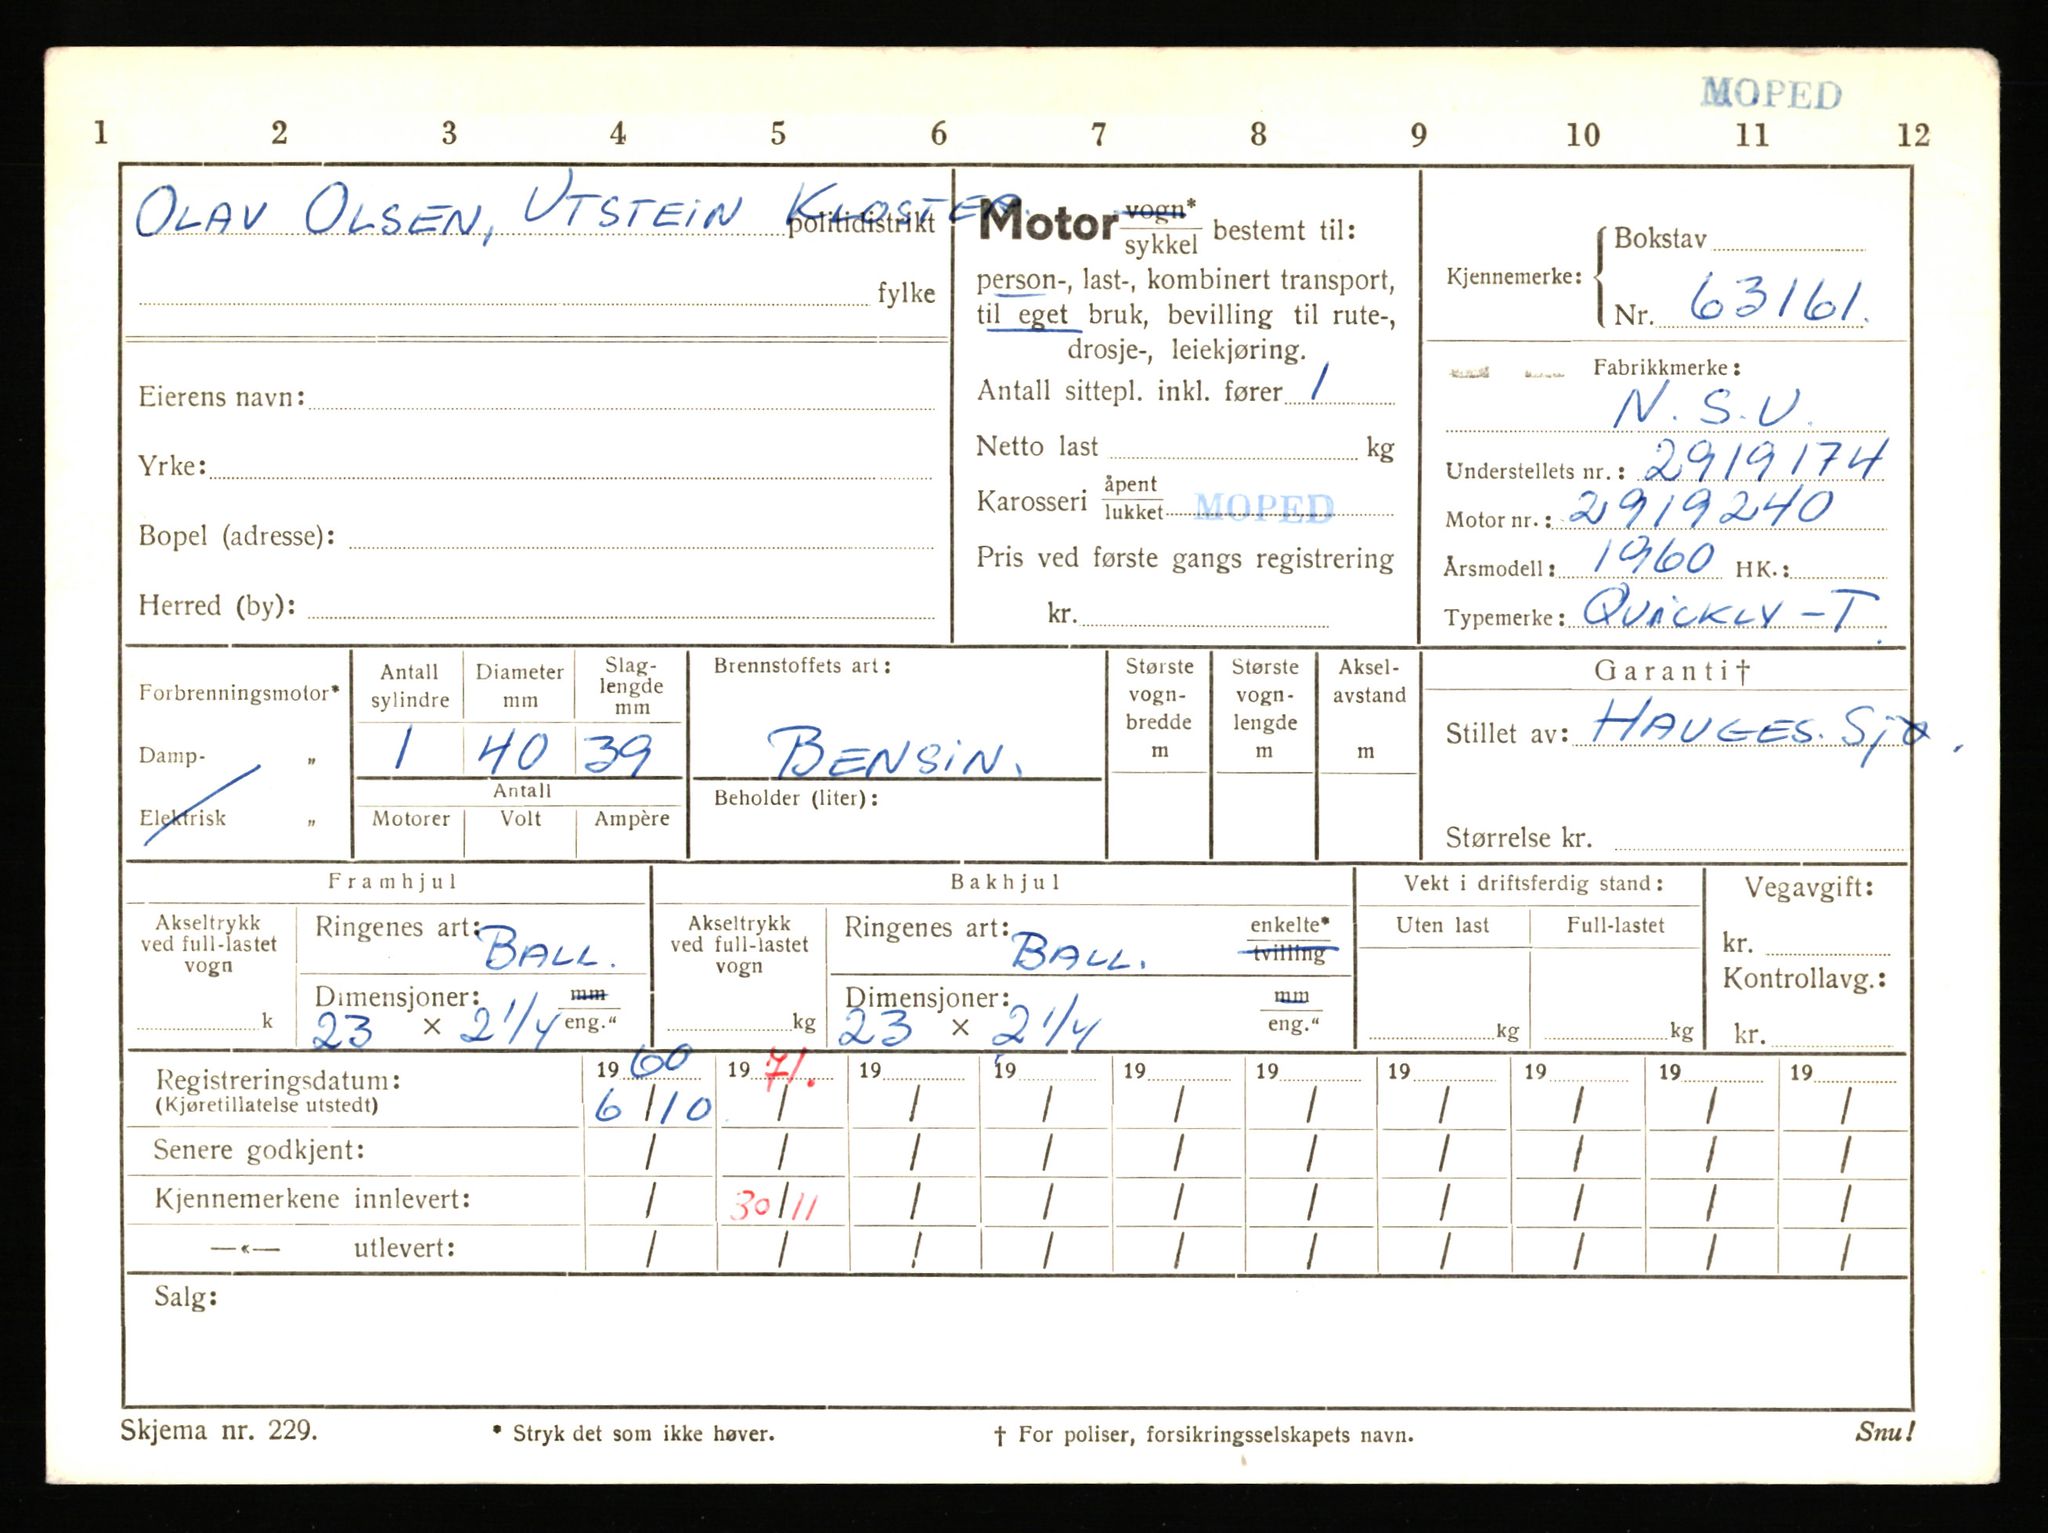 MOPED
1 2 3 4 5 6 7 8 9 10 11 12
OLAV OLSEN, UTSTEIN KLOSTER. politidistrikt
fylke
Eierens navn:
Yrke:
Bopel (adresse):
Herred (by):
Motor vogn* sykkel bestemt til:
person-, last-, kombinert transport,
til eget bruk, bevilling til rute-,
drosje-, leiekjøring.
Antall sittepl. inkl. fører 1
Netto last kg
Karosseri åpent lukket MOPED
Pris ved første gangs registrering
kr.
Kjennemerke: Bokstav
Nr. 63161.
Fabrikkmerke:
N.S.U.
Understellets nr.: 2919174
Motor nr.: 2919240
Årsmodell: 1960 HK.:
Typemerke: QUICKLY-T.
Forbrenningsmotor*
Damp- „
Elektrisk „
Antall sylindre Diameter mm Slag-lengde mm
1 40 39
Antall
Motorer Volt Ampère
Brennstoffets art:
BENSIN.
Beholder (liter):
Største vogn-bredde m
Største vogn-lengde m
Aksel-avstand m
Garanti†
Stillet av: HAUGES. Sjø.
Størrelse kr.
Framhjul
Akseltrykk ved full-lastet vogn
k
Ringenes art: BALL.
Dimensjoner: mm
23 × 2 1/4 eng."
Bakhjul
Akseltrykk ved full-lastet vogn
kg
Ringenes art: BALL. enkelte* tvilling
Dimensjoner: mm
23 × 2 1/4 eng."
Vekt i driftsferdig stand:
Uten last Full-lastet
kg kg
Vegavgift:
kr.
Kontrollavg.:
kr.
Registreringsdatum: 1960 1971. 19 19 19 19 19 19 19 19
(Kjøretillatelse utstedt) 6/10 / / / / / / / / /
Senere godkjent: / / / / / / / / / /
Kjennemerkene innlevert: / 30/11 / / / / / / / /
—«— utlevert: / / / / / / / / / /
Salg:
Skjema nr. 229. * Stryk det som ikke høver. † For poliser, forsikringsselskapets navn. Snu!